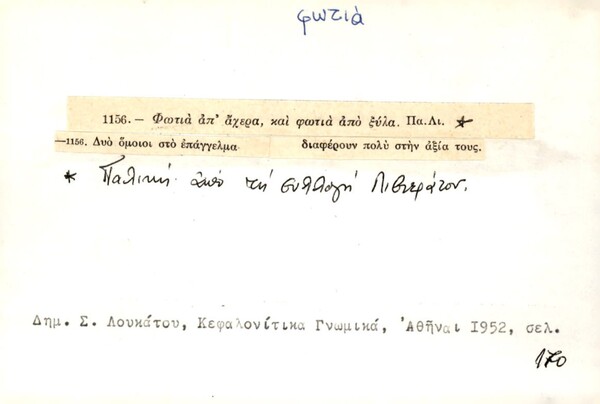 φωτιὰ
1156. — Φωτιὰ ἀπ' ἄχερα, καὶ φωτιὰ ἀπὸ ξύλα. Πα.Λι. *
—1156. Δυὸ ὅμοιοι στὸ ἐπάγγελμα διαφέρουν πολὺ στὴν ἀξία τους.
* Παλική· ἀπὸ τὴ συλλογὴ Λιβιεράτου.
Δημ. Σ. Λουκάτου, Κεφαλονίτικα Γνωμικά, Ἀθῆναι 1952, σελ.
170